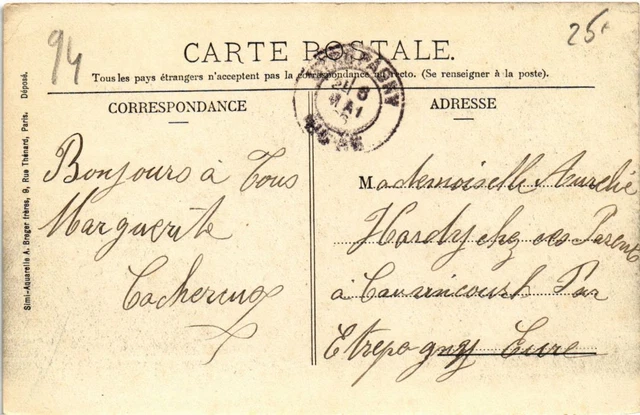 94
25
CARTE POSTALE.
Tous les pays étrangers n'acceptent pas la correspondance au recto. (Se renseigner à la poste).
CORRESPONDANCE
ADRESSE
Simi-Aquarelle A. Breger frères, 9, Rue Thénard, Paris. Déposé.
Bonjours à Tous
Marguerite
Mademoiselle Aurelie
Hardy chez ses Parents
à Par
Etrepagny Eure
MAI